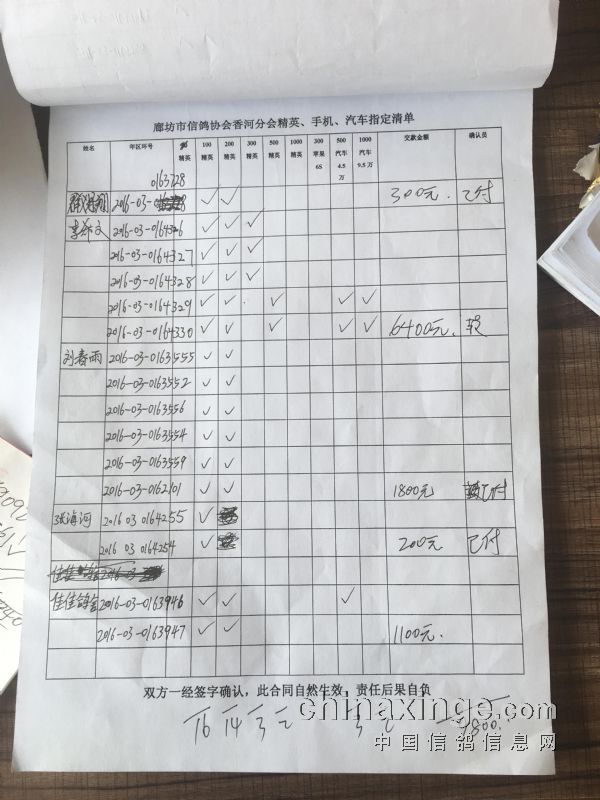 廊坊市信鸽协会香河分会精英、手机、汽车指定清单
姓名 年区环号 精英 100精英 200精英 300精英 500精英 1000精英 300苹果6S 500汽车4.5万 1000汽车9.5万 交款金额 确认员
0163728
2016-03- ✓ ✓ 300元. 已付
2016-03-0164326 ✓ ✓ ✓
2016-03-0164327 ✓ ✓ ✓
2016-03-0164328 ✓ ✓ ✓
2016-03-0164329 ✓ ✓ ✓ ✓ ✓
2016-03-0164330 ✓ ✓ ✓ ✓ ✓ 6400元.
刘春雨 2016-03-0163555 ✓ ✓
2016-03-0163552 ✓ ✓
2016-03-0163556 ✓ ✓
2016-03-0163554 ✓ ✓
2016-03-0163559 ✓ ✓
2016-03-0162101 ✓ ✓ 1800元 已付
张海河 2016 03 0164255 ✓
2016 03 0164254 ✓ 200元 已付
佳佳鸽舍 2016-03-0163946 ✓ ✓ ✓
2016-03-0163947 ✓ ✓ 1100元.
双方一经签字确认，此合同自然生效，责任后果自负
16 14 3 2 3 2 9800.
chinaxinge.com
中国信鸽信息网